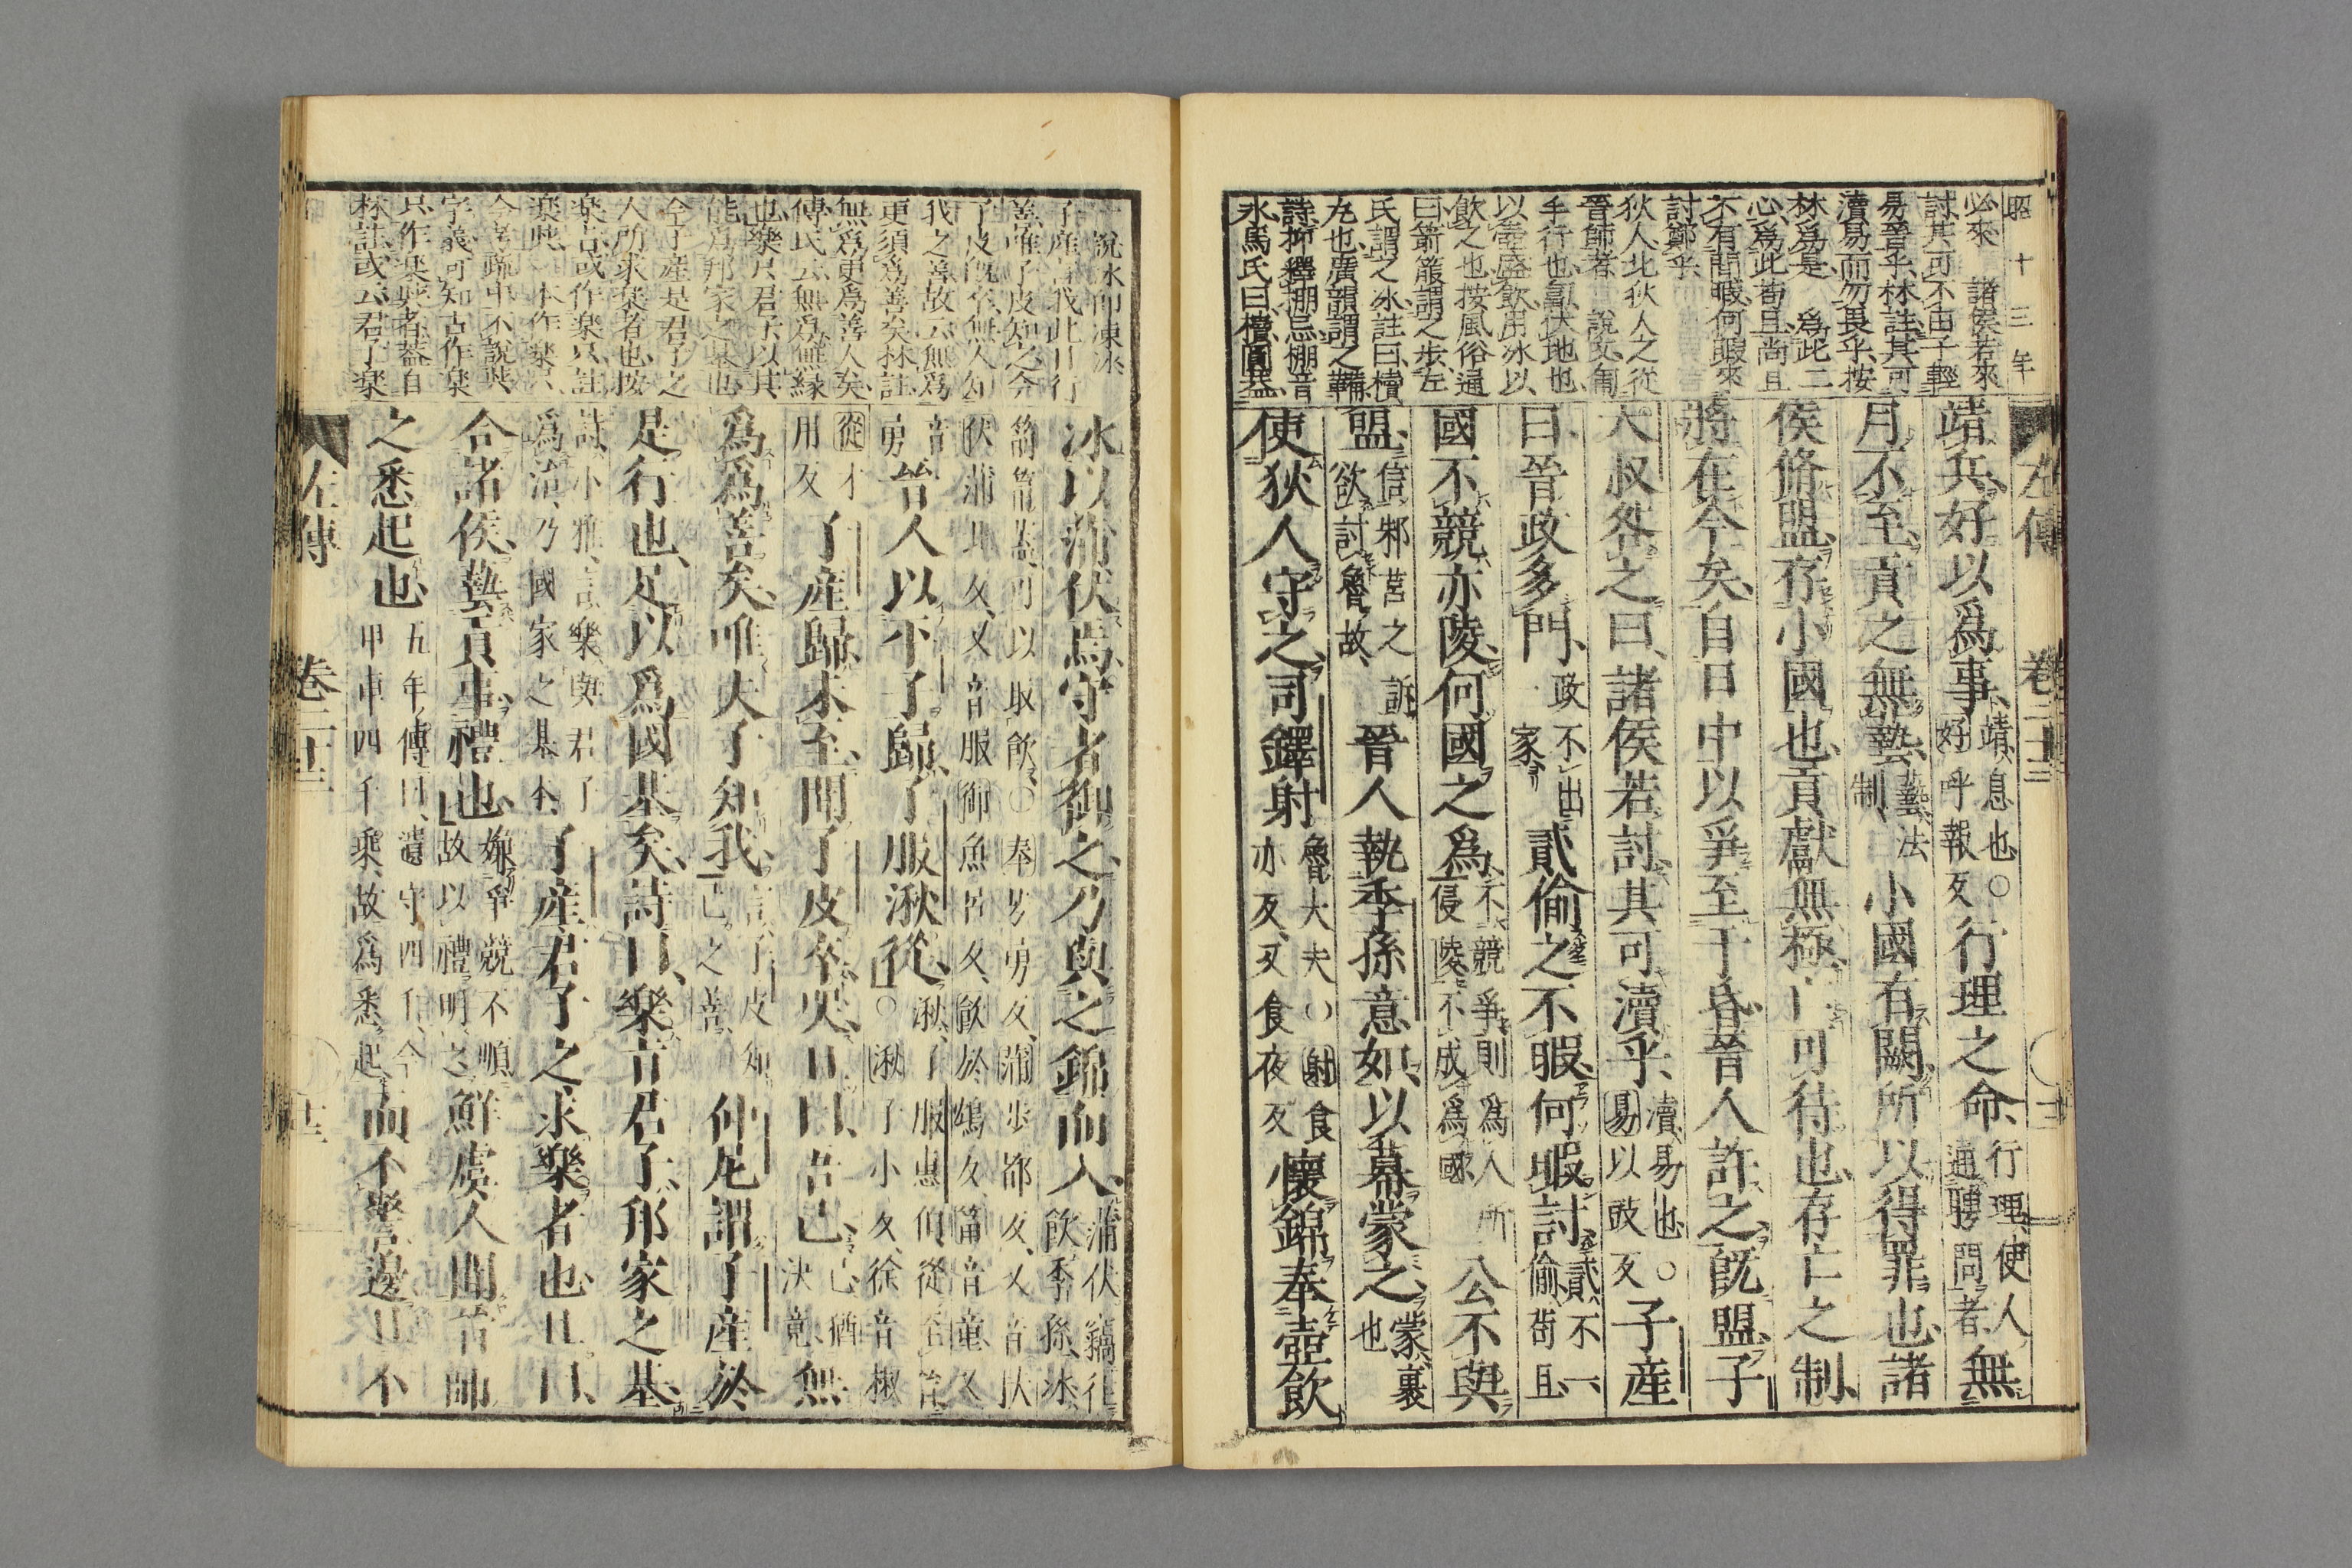 昭十三年
必來 諸侯若來
討其可不由子輕
易晉乎林註其可
瀆易而勿畏乎按
林爲是 爲此二
心爲此苟且尚且
不有間暇何暇來
討鄭乎
狄人北狄人之從
晉師者 說文匍
手行也匐伏地也
以壺盛飲用冰以
飲之也按風俗通
曰箭箙謂之步左
氏謂之冰註曰櫝
丸也廣韻謂之鞴
詩抑釋掤忌掤音
冰馬氏曰櫝圓蓋
左傳 卷二十三
靖兵好以爲事靖息也○好呼報反行理之命行理使人通聘問者無
月不至貢之無藝藝法制小國有闕所以得罪也諸
侯脩盟存小國也貢獻無極亡可待也存亡之制
將在今矣自日中以爭至于昏晉人許之旣盟子
大叔咎之曰諸侯若討其可瀆乎瀆易也○易以豉反子產
曰晉政多門政不出家貳偷之不暇何暇討貳不一偷苟且
國不競亦陵何國之爲不競爭則爲人所侵陵不成爲國公不與
盟信邾莒之訴欲討魯故晉人執季孫意如以幕蒙之蒙裹也
使狄人守之司鐸射魯大夫○射食亦反又食夜反懷錦奉壺飲
一說冰卽凍冰
子產言代此日行
善唯子皮知之今
子皮旣卒無人知
我之善故云無爲
更須爲善矣林註
無爲更爲善人矣
傳氏云無爲無緣
也樂只君子以其
能爲邦家之基也
今子產是君子之
人所求樂者也按
樂旨或作樂只註
冰以蒲伏焉守者御之乃與之錦而入蒲伏竊往飲季孫冰
箭筩蓋可以取飲○奉芳勇反蒲步都反又音扶
伏蒲北反又音服御魚呂反飲於鴆反筩音童又
音勇晉人以平子歸子服湫從湫子服惠伯從至晉○湫子小反徐音椒
從才用反子產歸未至聞子皮卒哭且曰吾已已猶決意無
爲爲善矣唯夫子知我言子皮知己之善仲尼謂子產於
是行也足以爲國基矣詩曰樂旨君子邦家之基
詩小雅言樂與君子爲治乃國家之基本子產君子之求樂者也且曰
合諸侯藝貢事禮也嫌爭競不順故以禮明之鮮虞人聞晉師
之悉起也五年傳曰遺守四千今甲車四千乘故爲悉起而不警邊且不
左傳 卷二十三